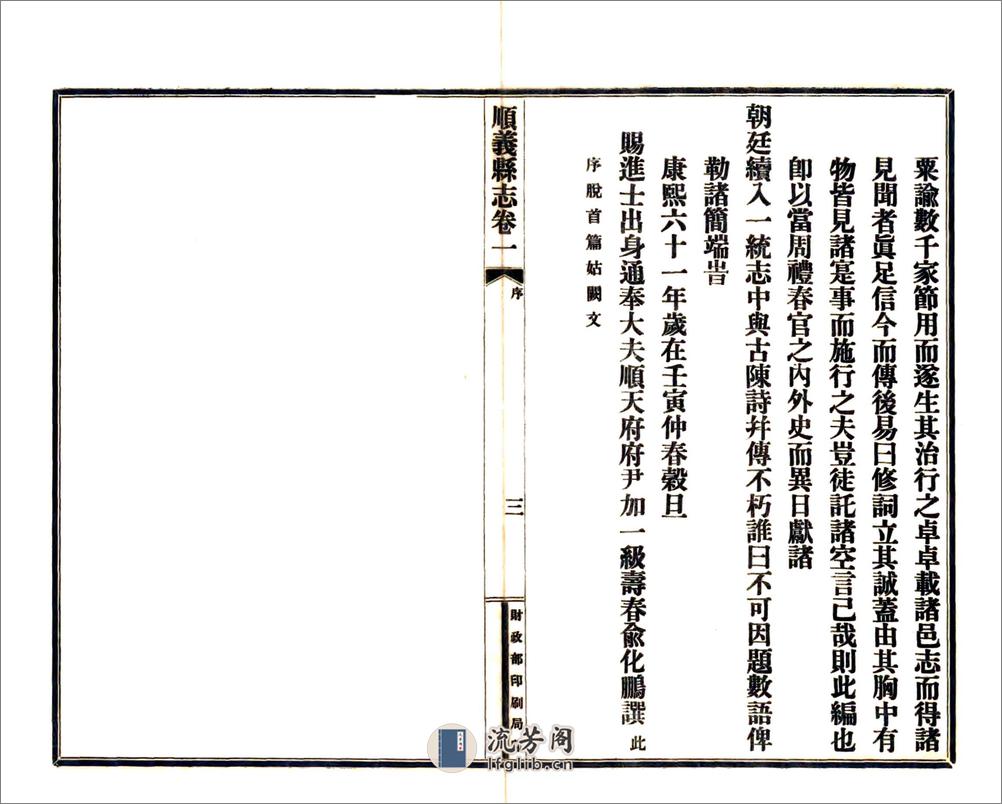 粟諭數千家節用而遂生其治行之卓卓載諸邑志而得諸
見聞者眞足信今而傳後易曰修詞立其誠蓋由其胸中有
物皆見諸寔事而施行之夫豈徒託諸空言已哉則此編也
卽以當周禮春官之內外史而異日獻諸
朝廷續入一統志中與古陳詩幷傳不朽誰曰不可因題數語俾
勒諸簡端旹
康熙六十一年歲在壬寅仲春穀旦
賜進士出身通奉大夫順天府府尹加一級壽春兪化鵬譔 此
序脫首篇姑闕文
順義縣志卷一
序
三
財政部印刷局
流芳阁
lfglib.cn